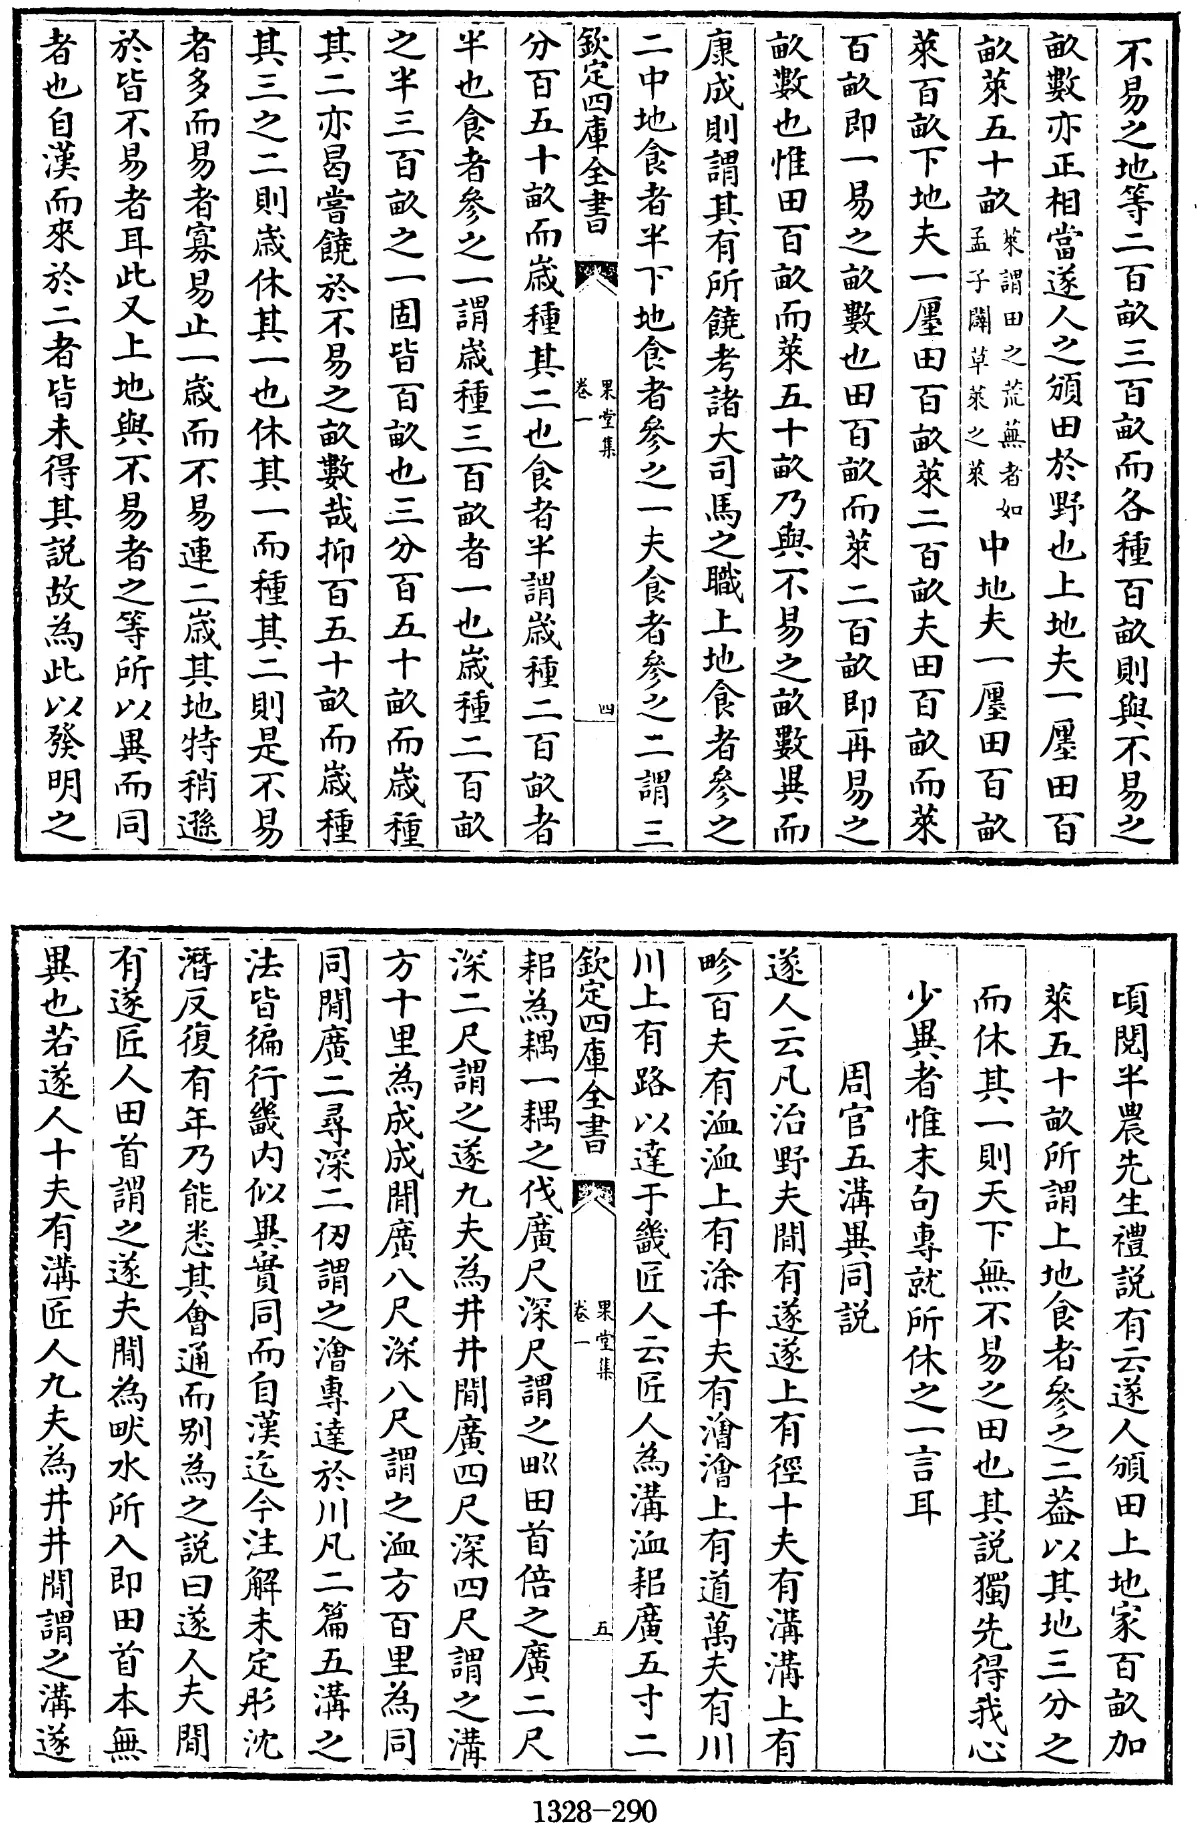 不易之地等二百畝三百畝而各種百畝則與不易之
畝數亦正相當遂人之頒田於野也上地夫一廛田百
畝萊五十畝萊謂田之荒蕪者如孟子闢草萊之萊中地夫一廛田百畝
萊百畝下地夫一廛田百畝萊二百畝夫田百畝而萊
百畝即一易之畝數也田百畝而萊二百畝即再易之
畝數也惟田百畝而萊五十畝乃與不易之畝數異而
康成則謂其有所饒考諸大司馬之職上地食者參之
二中地食者半下地食者參之一夫食者參之二謂三
欽定四庫全書
果堂集
卷一
四
分百五十畝而歳種其二也食者半謂歳種二百畝者
半也食者參之一謂歳種三百畝者一也歳種二百畝
之半三百畝之一固皆百畝也三分百五十畝而歳種
其二亦曷嘗饒於不易之畝數哉抑百五十畝而歳種
其三之二則歳休其一也休其一而種其二則是不易
者多而易者寡易止一歳而不易連二歳其地特稍遜
於皆不易者耳此又上地與不易者之等所以異而同
者也自漢而來於二者皆未得其説故為此以發明之
頃閲半農先生禮説有云遂人頒田上地家百畝加
萊五十畝所謂上地食者參之二葢以其地三分之
而休其一則天下無不易之田也其説獨先得我心
少異者惟末句專就所休之一言耳
周官五溝異同説
遂人云凡治野夫間有遂遂上有徑十夫有溝溝上有
畛百夫有洫洫上有涂千夫有澮澮上有道萬夫有川
川上有路以達于畿匠人云匠人為溝洫耜廣五寸二
欽定四庫全書
果堂集
卷一
五
耜為耦一耦之伐廣尺深尺謂之𤰝田首倍之廣二尺
深二尺謂之遂九夫為井井間廣四尺深四尺謂之溝
方十里為成成間廣八尺深八尺謂之洫方百里為同
同間廣二尋深二仞謂之澮專達於川凡二篇五溝之
法皆徧行畿内似異實同而自漢迄今注解未定彤沈
潛反復有年乃能悉其㑹通而别為之説曰遂人夫間
有遂匠人田首謂之遂夫間為畎水所入即田首本無
異也若遂人十夫有溝匠人九夫為井井間謂之溝遂
1328-290